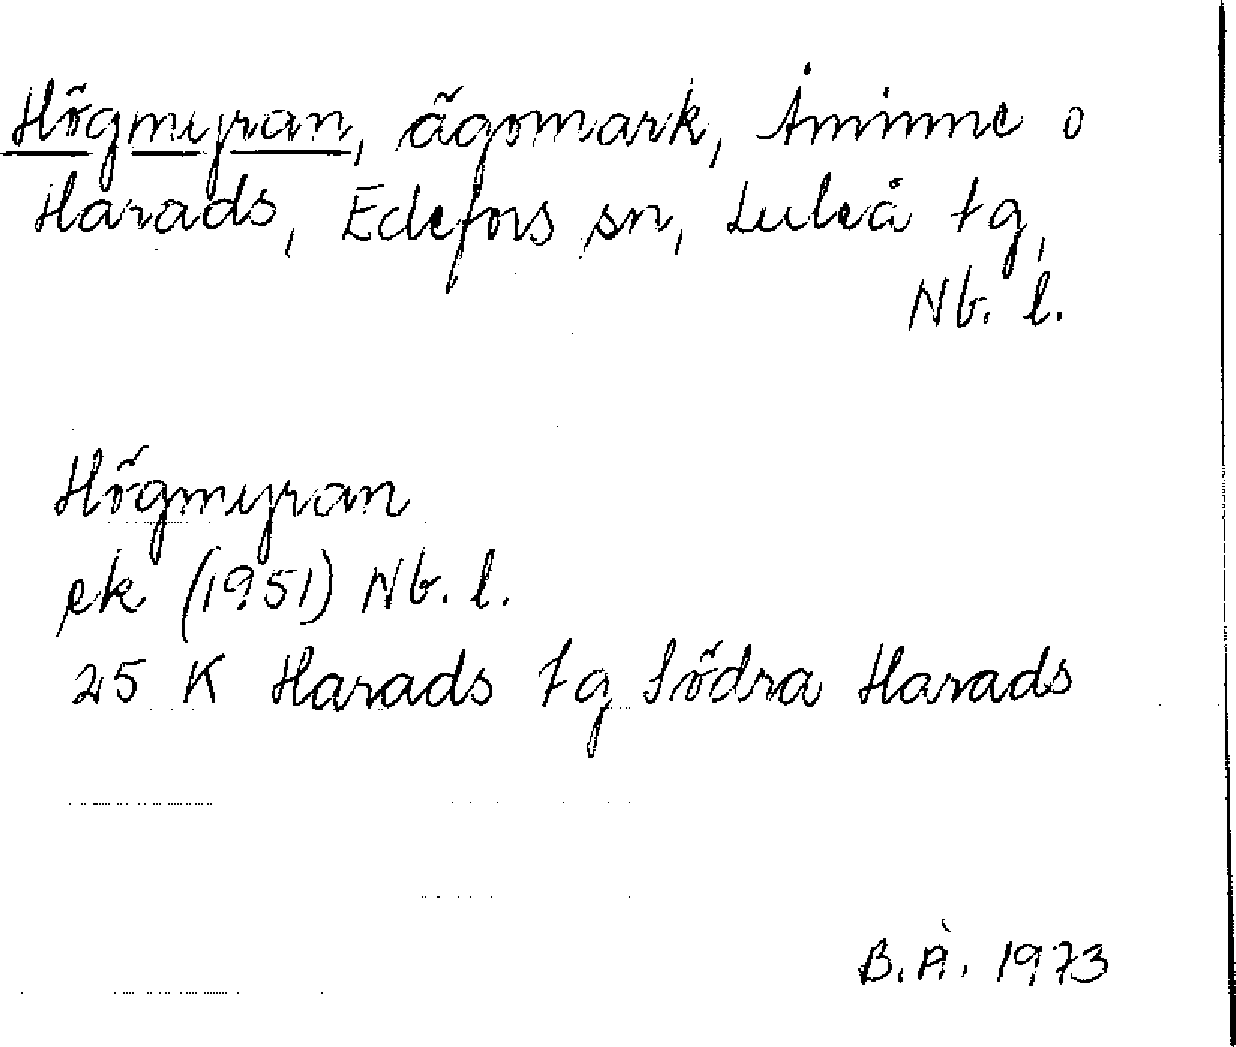 Högmyran, ägomark, Åminne o
Harads, Edefors sn, Luleå tg,
Nb. l.
Högmyran
ek (1951) Nb. l.
25 K Harads tg Södra Harads
B.Å. 1973